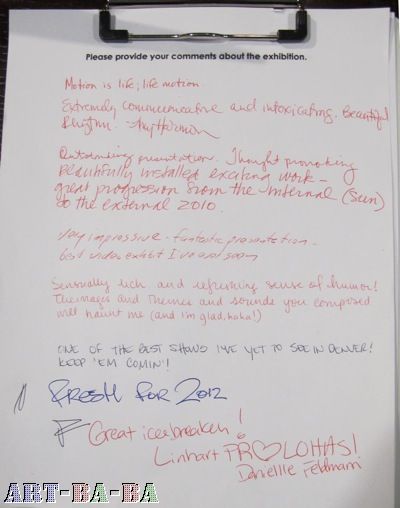 Please provide your comments about the exhibition.
Motion is life; life motion.
Extremely communicative and intoxicating. Beautiful
Rhythm. - Amy Harmon
Outstanding presentation. Thought provoking
beautifully installed exciting work -
great progression from the internal (Sun)
to the external 2010.
very impressive - fantastic presentation -
best video exhibit I've ever seen
Sensually rich and refreshing sense of humor!
The images and themes and sounds you composed
will haunt me (and i'm glad, haha!)
ONE OF THE BEST SHOWS I'VE YET TO SEE IN DENVER!
KEEP 'EM COMIN'!
FRESH FOR 2012
Great icebreaker!
Linhart PR ♡ LOHAS!
Danielle Feldmann
ART-BA-BA